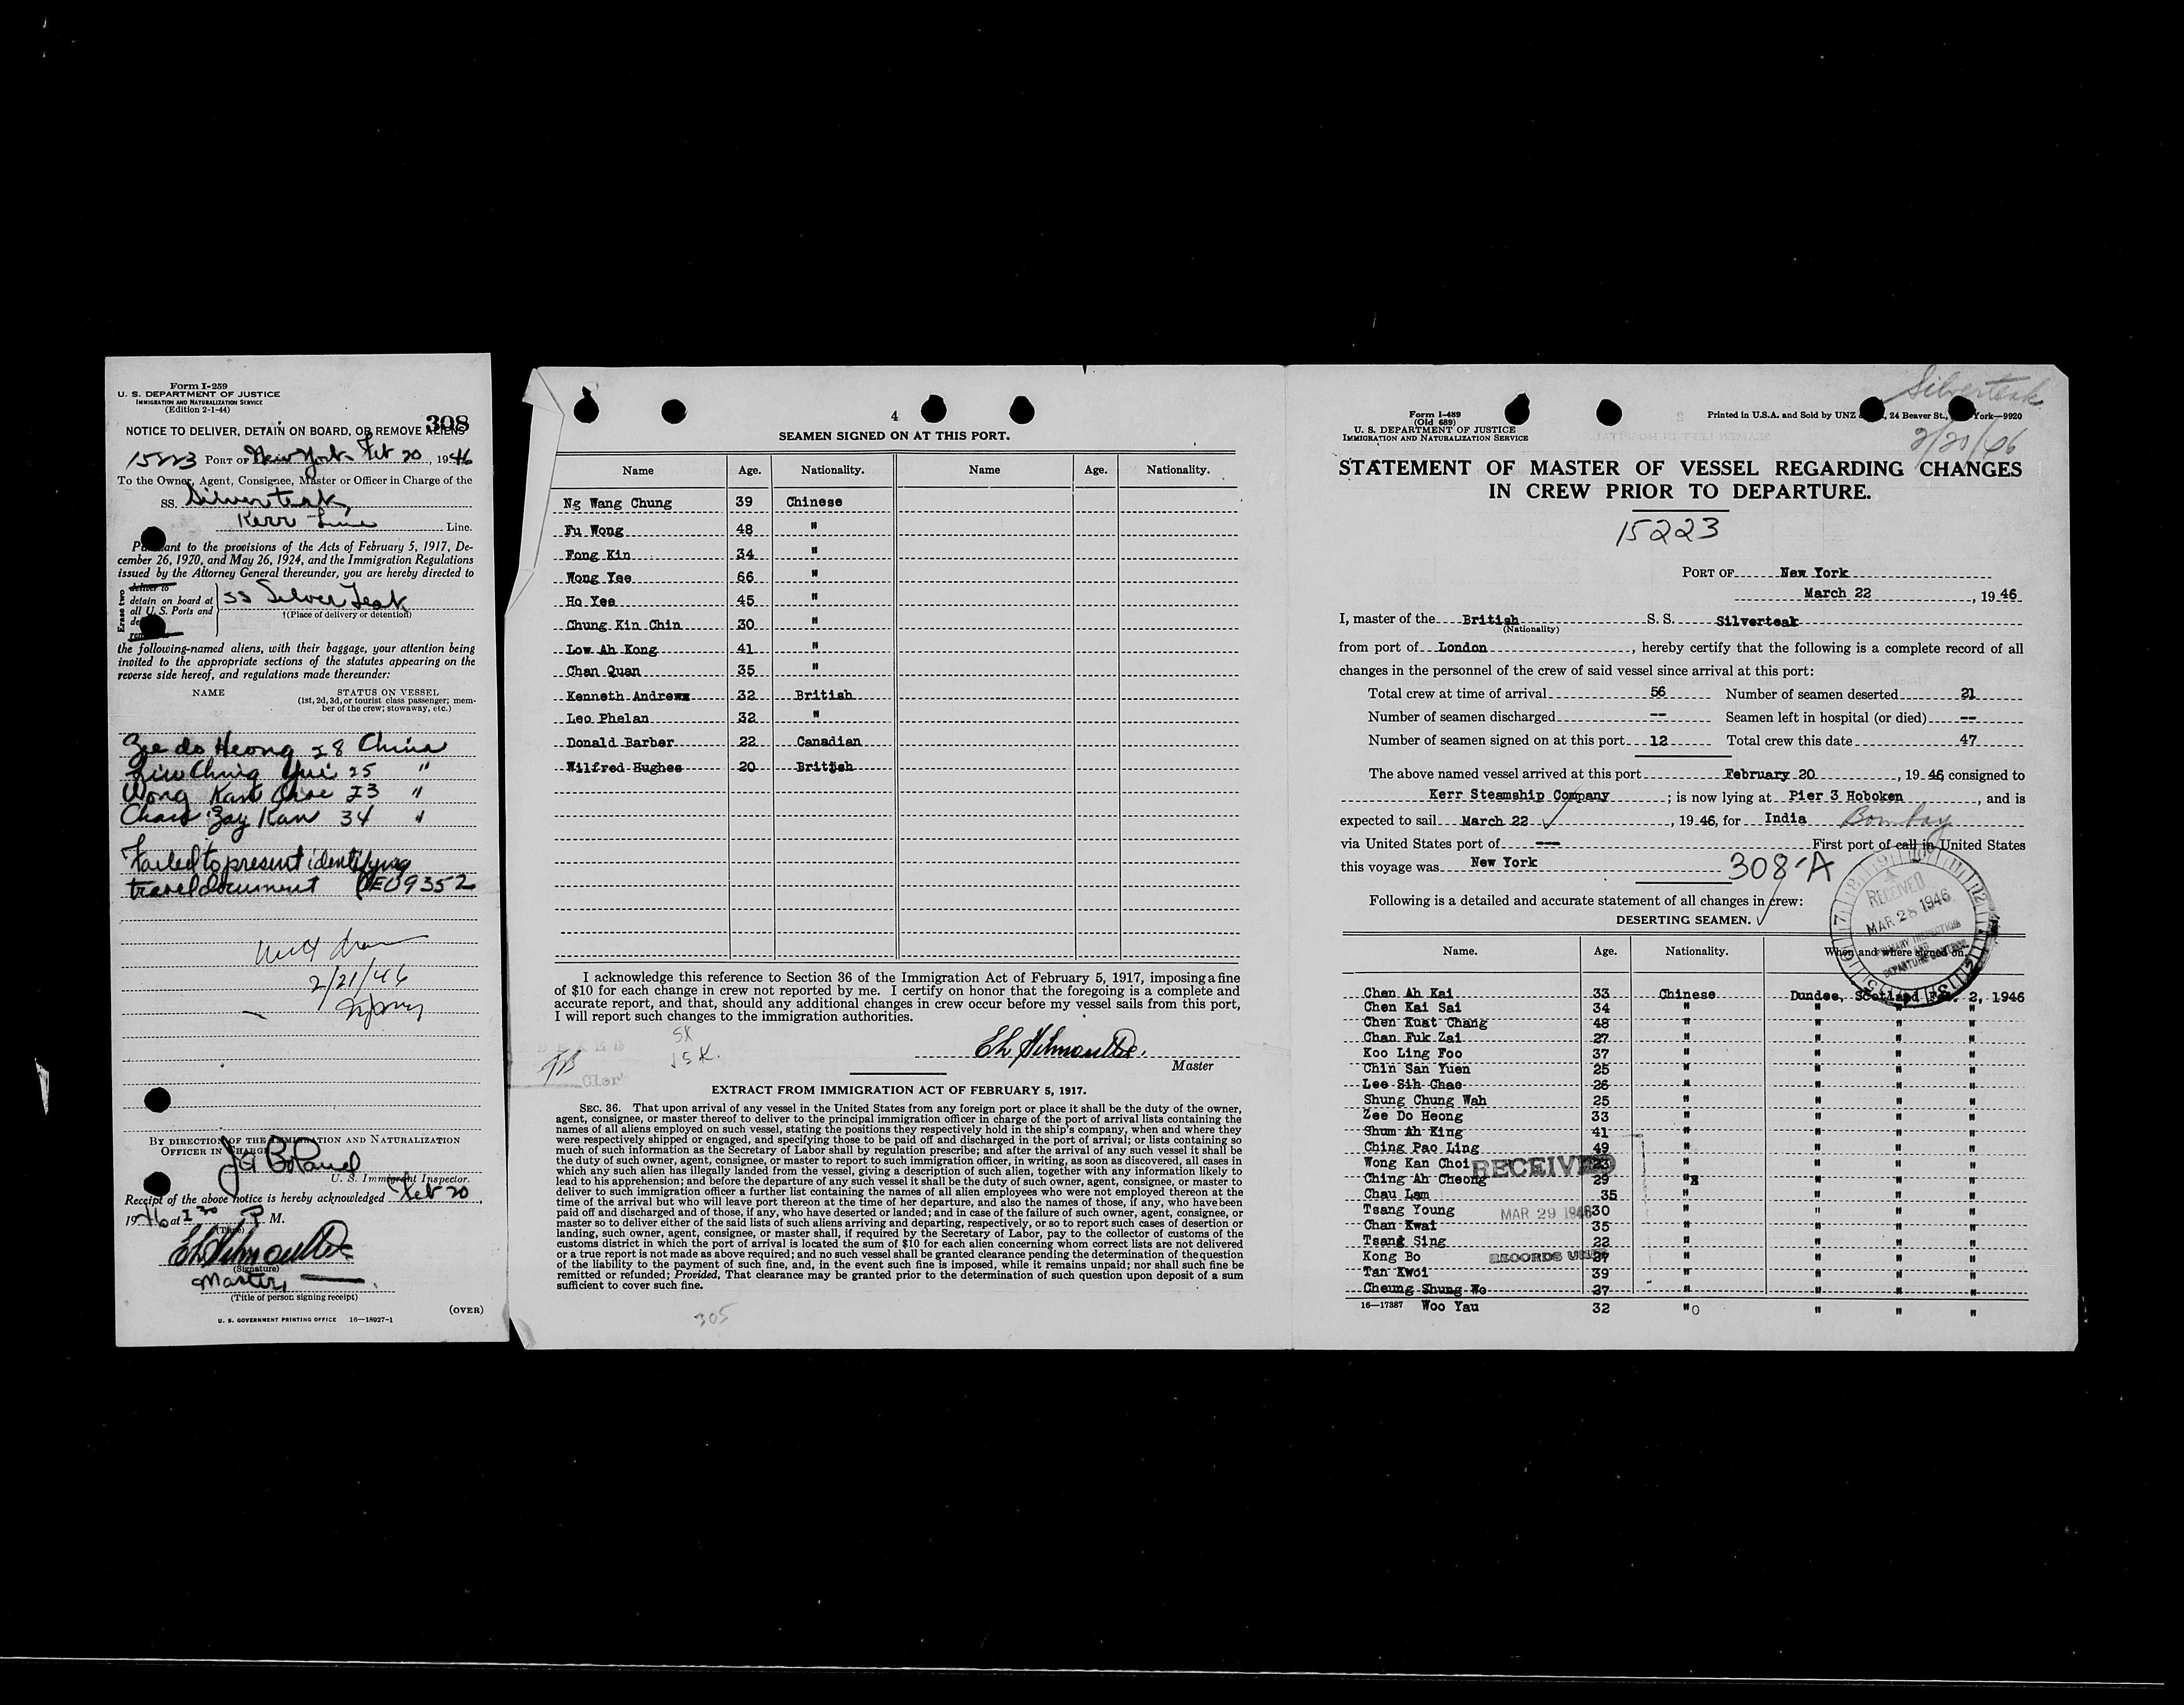 Form I-259
U. S. DEPARTMENT OF JUSTICE
IMMIGRATION AND NATURALIZATION SERVICE
(Edition 2-1-44)
308
NOTICE TO DELIVER, DETAIN ON BOARD, OR REMOVE ALIENS
15223 PORT OF New York Feb 20, 1946
To the Owner, Agent, Consignee, Master or Officer in Charge of the
SS. Silverteak,
Kerr Line Line.
Pursuant to the provisions of the Acts of February 5, 1917, De-
cember 26, 1920, and May 26, 1924, and the Immigration Regulations
issued by the Attorney General thereunder, you are hereby directed to
Erase two
deliver to
detain on board at
all U. S. Ports and
SS Silver Teak
†(Place of delivery or detention)
the following-named aliens, with their baggage, your attention being
invited to the appropriate sections of the statutes appearing on the
reverse side hereof, and regulations made thereunder:
NAME STATUS ON VESSEL
(1st, 2d, 3d, or tourist class passenger; mem-
ber of the crew; stowaway, etc.)
Zee do Heong 28 China
Liu Ching Yui 25 "
Wong Kan Choe 23 "
Chau Zay Kan 34 "
Failed to present identifying
travel document
2/21/46
BY DIRECTION OF THE IMMIGRATION AND NATURALIZATION
OFFICER IN CHARGE
U. S. Immigrant Inspector.
Receipt of the above notice is hereby acknowledged Feb 20,
1946 at 2 30 P. M.
(Time)
(Signature)
Master,
(Title of person signing receipt)
(OVER)
U. S. GOVERNMENT PRINTING OFFICE 16—18927-1
4
SEAMEN SIGNED ON AT THIS PORT.
Name Age. Nationality. Name Age. Nationality.
Ng Wang Chung 39 Chinese
Fu Wong 48 "
Fong Kin 34 "
Wong Yee 66 "
Ho Yee 45 "
Chung Kin Chin 30 "
Low Ah Kong 41 "
Chan Quan 35 "
Kenneth Andrews 32 British
Leo Phelan 32 "
Donald Barber 22 Canadian
Wilfred Hughes 20 British
I acknowledge this reference to Section 36 of the Immigration Act of February 5, 1917, imposing a fine
of $10 for each change in crew not reported by me. I certify on honor that the foregoing is a complete and
accurate report, and that, should any additional changes in crew occur before my vessel sails from this port,
I will report such changes to the immigration authorities.
Master
EXTRACT FROM IMMIGRATION ACT OF FEBRUARY 5, 1917.
SEC. 36. That upon arrival of any vessel in the United States from any foreign port or place it shall be the duty of the owner,
agent, consignee, or master thereof to deliver to the principal immigration officer in charge of the port of arrival lists containing the
names of all aliens employed on such vessel, stating the positions they respectively hold in the ship's company, when and where they
were respectively shipped or engaged, and specifying those to be paid off and discharged in the port of arrival; or lists containing so
much of such information as the Secretary of Labor shall by regulation prescribe; and after the arrival of any such vessel it shall be
the duty of such owner, agent, consignee, or master to report to such immigration officer, in writing, as soon as discovered, all cases in
which any such alien has illegally landed from the vessel, giving a description of such alien, together with any information likely to
lead to his apprehension; and before the departure of any such vessel it shall be the duty of such owner, agent, consignee, or master to
deliver to such immigration officer a further list containing the names of all alien employees who were not employed thereon at the
time of the arrival but who will leave port thereon at the time of her departure, and also the names of those, if any, who have been
paid off and discharged and of those, if any, who have deserted or landed; and in case of the failure of such owner, agent, consignee, or
master so to deliver either of the said lists of such aliens arriving and departing, respectively, or so to report such cases of desertion or
landing, such owner, agent, consignee, or master shall, if required by the Secretary of Labor, pay to the collector of customs of the
customs district in which the port of arrival is located the sum of $10 for each alien concerning whom correct lists are not delivered
or a true report is not made as above required; and no such vessel shall be granted clearance pending the determination of the question
of the liability to the payment of such fine, and, in the event such fine is imposed, while it remains unpaid; nor shall such fine be
remitted or refunded; Provided, That clearance may be granted prior to the determination of such question upon deposit of a sum
sufficient to cover such fine.
305
Silverteak
2/20/46
Form I-489
(Old 689)
U. S. DEPARTMENT OF JUSTICE
IMMIGRATION AND NATURALIZATION SERVICE
Printed in U.S.A. and Sold by UNZ 24 Beaver St., York—9920
STATEMENT OF MASTER OF VESSEL REGARDING CHANGES
IN CREW PRIOR TO DEPARTURE.
15223
PORT OF New York
March 22, 1946
I, master of the British S. S. Silverteak
(Nationality)
from port of London, hereby certify that the following is a complete record of all
changes in the personnel of the crew of said vessel since arrival at this port:
Total crew at time of arrival 56 Number of seamen deserted 21
Number of seamen discharged -- Seamen left in hospital (or died) --
Number of seamen signed on at this port 12 Total crew this date 47
The above named vessel arrived at this port February 20, 1946, consigned to
Kerr Steamship Company; is now lying at Pier 3 Hoboken, and is
expected to sail March 22, 1946, for India Bombay
via United States port of --- First port of call in United States
this voyage was New York
308-A
RECEIVED
MAR 28 1946
PRIMARY INSPECTION
AND
DEPARTURE CONTROL
Following is a detailed and accurate statement of all changes in crew:
DESERTING SEAMEN.
Name. Age. Nationality. When and where signed on.
Chen Ah Kai 33 Chinese Dundee, Scotland Feb. 2, 1946
Chen Kai Sai 34 " " " "
Chen Kuat Chang 48 " " " "
Chan Fuk Zai 27 " " " "
Koo Ling Foo 37 " " " "
Chin San Yuen 25 " " " "
Lee Sih Chao 26 " " " "
Shung Chung Wah 25 " " " "
Zee Do Heong 33 " " " "
Shum Ah King 41 " " " "
Ching Pao Ling 49 " " " "
Wong Kan Choi 23 " " " "
Ching Ah Cheong 29 " " " "
Chau Lam 35 " " " "
Tsang Young 30 " " " "
Chan Kwai 35 " " " "
Tsang Sing 22 " " " "
Kong Bo 27 " " " "
Tan Kwoi 39 " " " "
Cheung Shung Wo 37 " " " "
16—17387 Woo Yau 32 " " " "
RECEIVED
MAR 29 1946
RECORDS UNIT